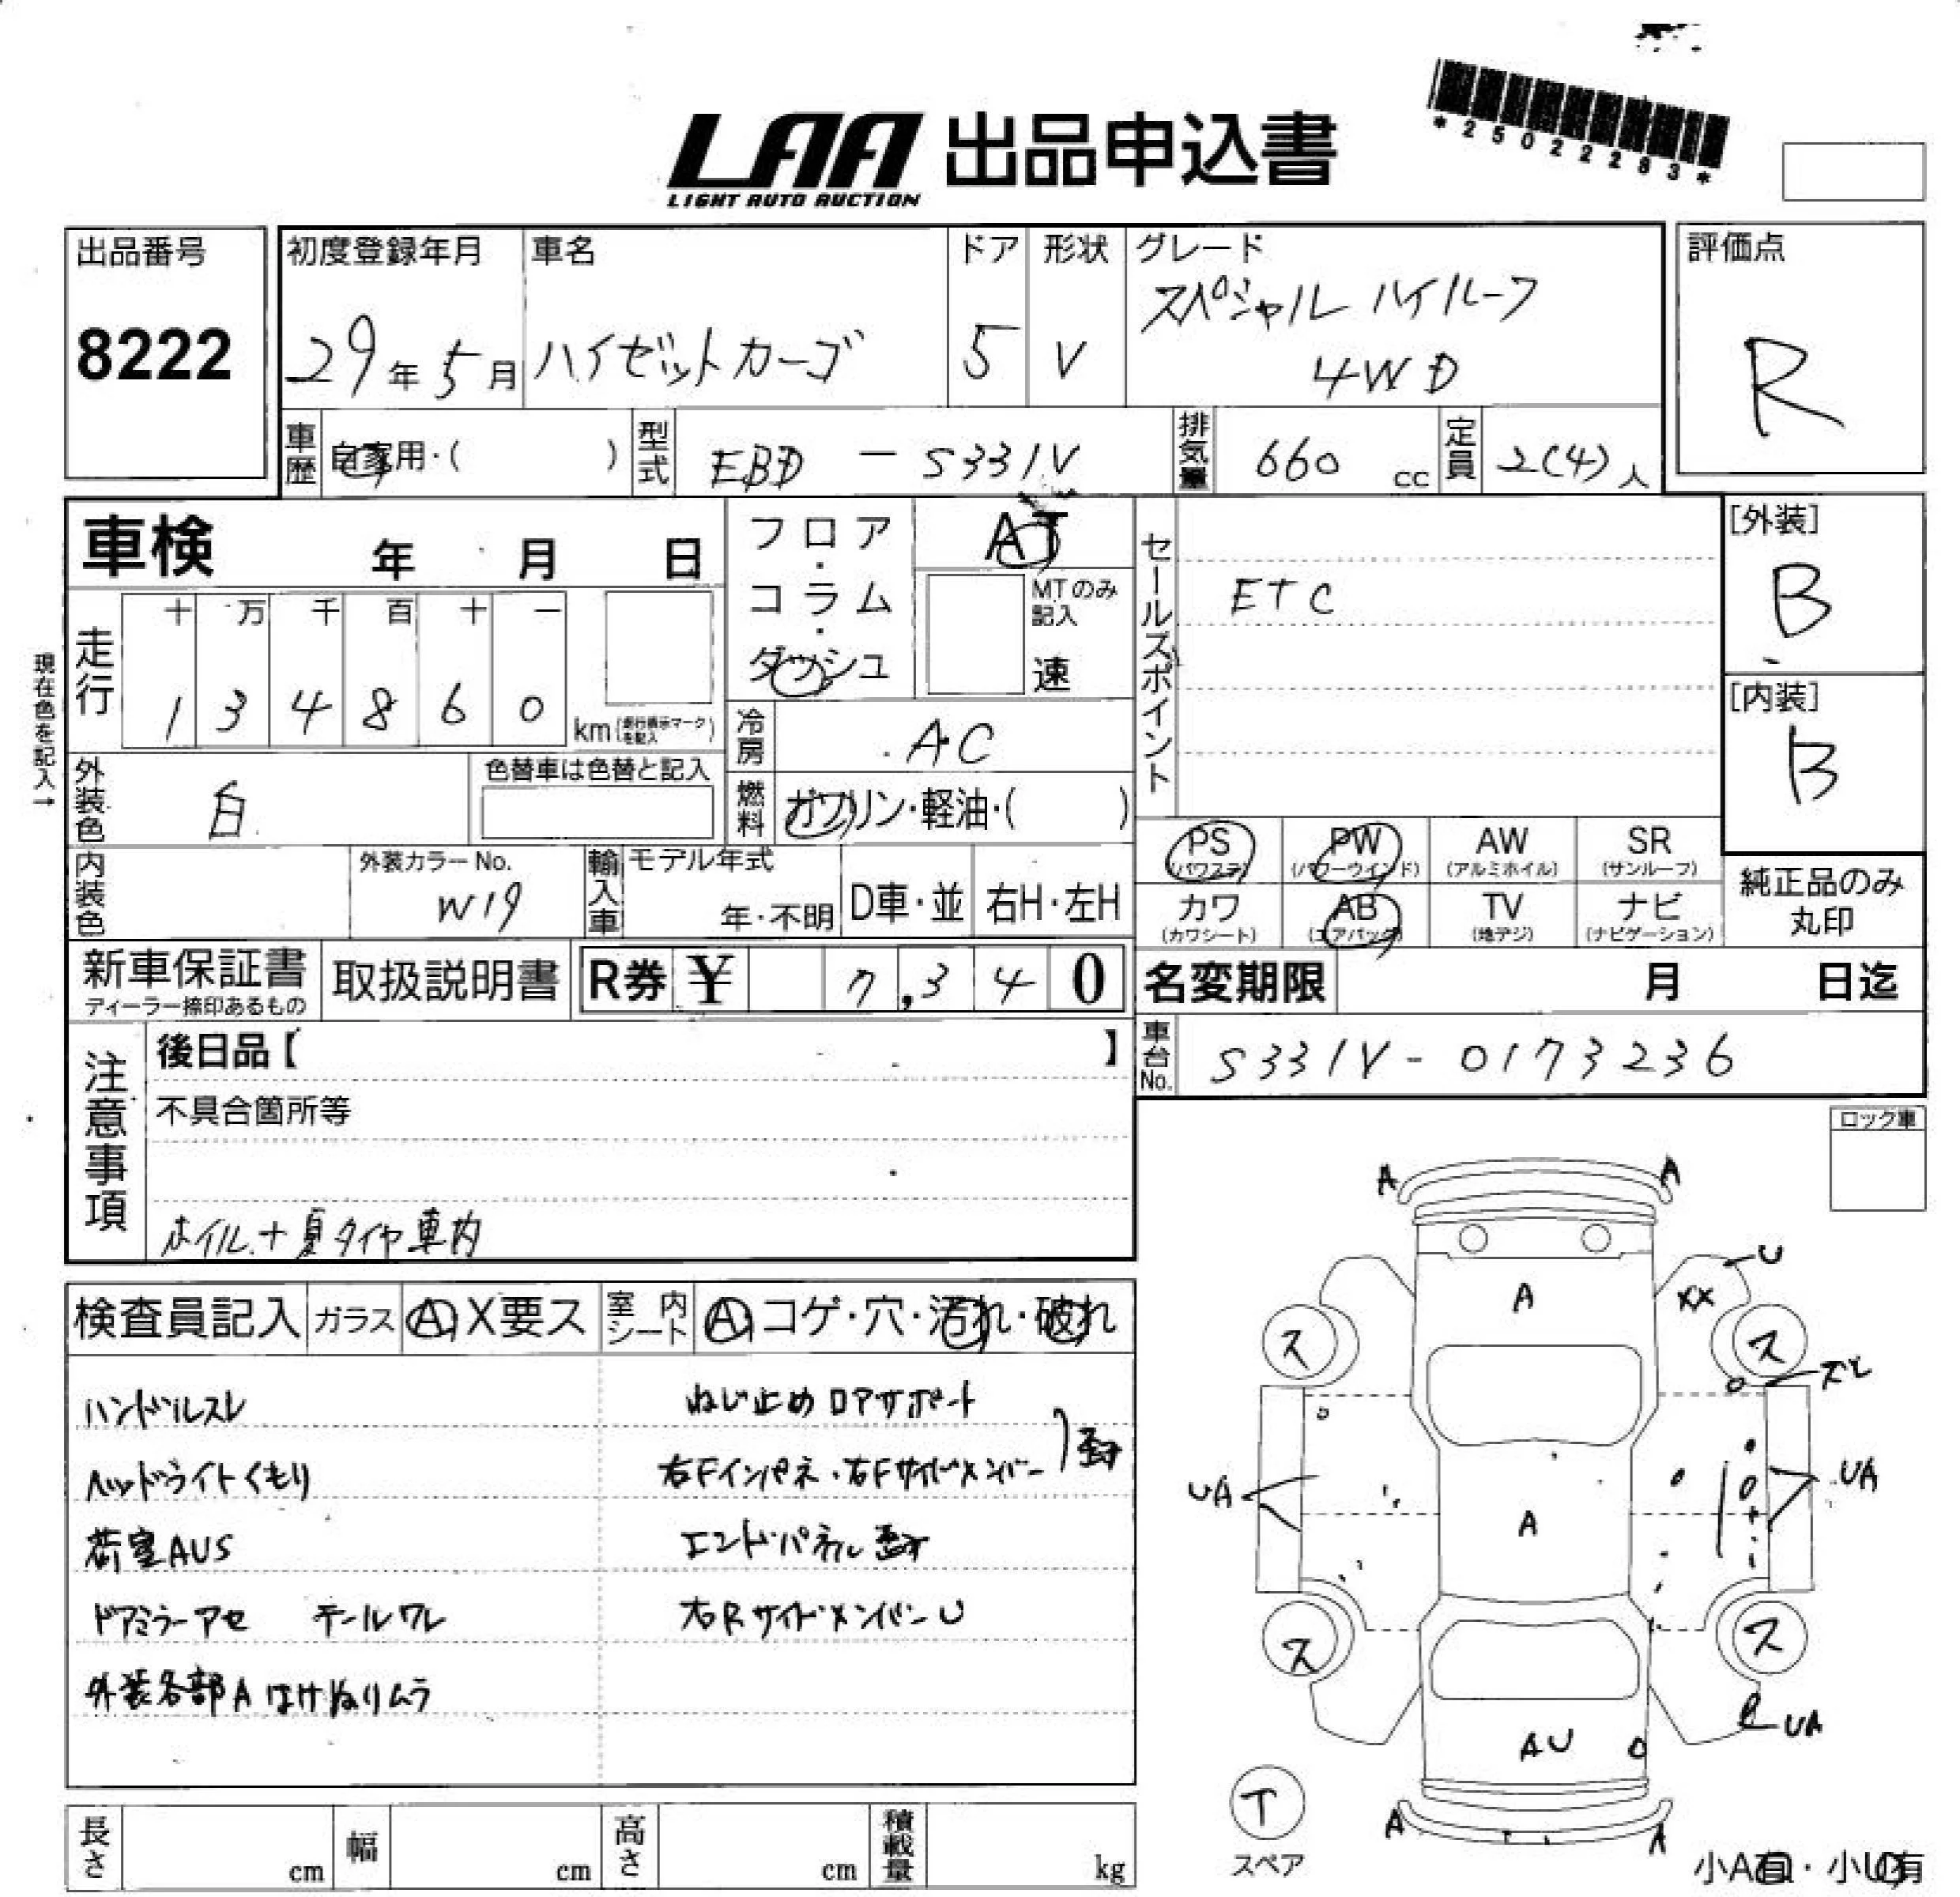 LAA 出品申込書
LIGHT AUTO AUCTION
*25022283*
出品番号
8222
初度登録年月
29年5月
車名
ハイゼットカーゴ
ドア
5
形状
V
グレード
スペシャル ハイルーフ
4WD
評価点
R
車歴
自家用・( )
型式
EBD - S331V
排気量
660 cc
定員
2(4)人
車検 年 月 日
現在色を記入→
走行
十 万 千 百 十 一
1 3 4 8 6 0
km(走行表示マークを記入)
外装色
白
色替車は色替と記入
内装色
外装カラーNo.
W19
輸入車
モデル年式
年・不明
D車・並
右H・左H
フロア・コラム・ダッシュ
AT
MTのみ
記入
速
冷房
AC
燃料
ガソリン・軽油・( )
セールスポイント
ETC
[外装]
B
[内装]
B
PS
(パワステ)
PW
(パワーウインド)
AW
(アルミホイル)
SR
(サンルーフ)
カワ
(カワシート)
AB
(エアバック)
TV
(地デジ)
ナビ
(ナビゲーション)
純正品のみ
丸印
新車保証書
ディーラー捺印あるもの
取扱説明書
R券 ¥ 7,340
名変期限 月 日迄
車台No.
S331V-0173236
注意事項
後日品【 】
不具合箇所等
ホイル+夏タイヤ車内
ロック車
検査員記入
ガラス
A X要ス
室内シート
A コゲ・穴・汚れ・破れ
ハンドルスレ
ヘッドライトくもり
荷室AUS
ドアミラーアセ テールワレ
外装各部A はけぬりムラ
ねじ止め ロアサポート
右Fインパネ・右Fサイドメンバー
エンドパネル
右Rサイドメンバー U
A A
U
A XX
ス ス
ズレ
UA UA
A
ス ス
UA
AU
T
スペア
A A
長さ cm
幅 cm
高さ cm
積載量 kg
小A有・小U有